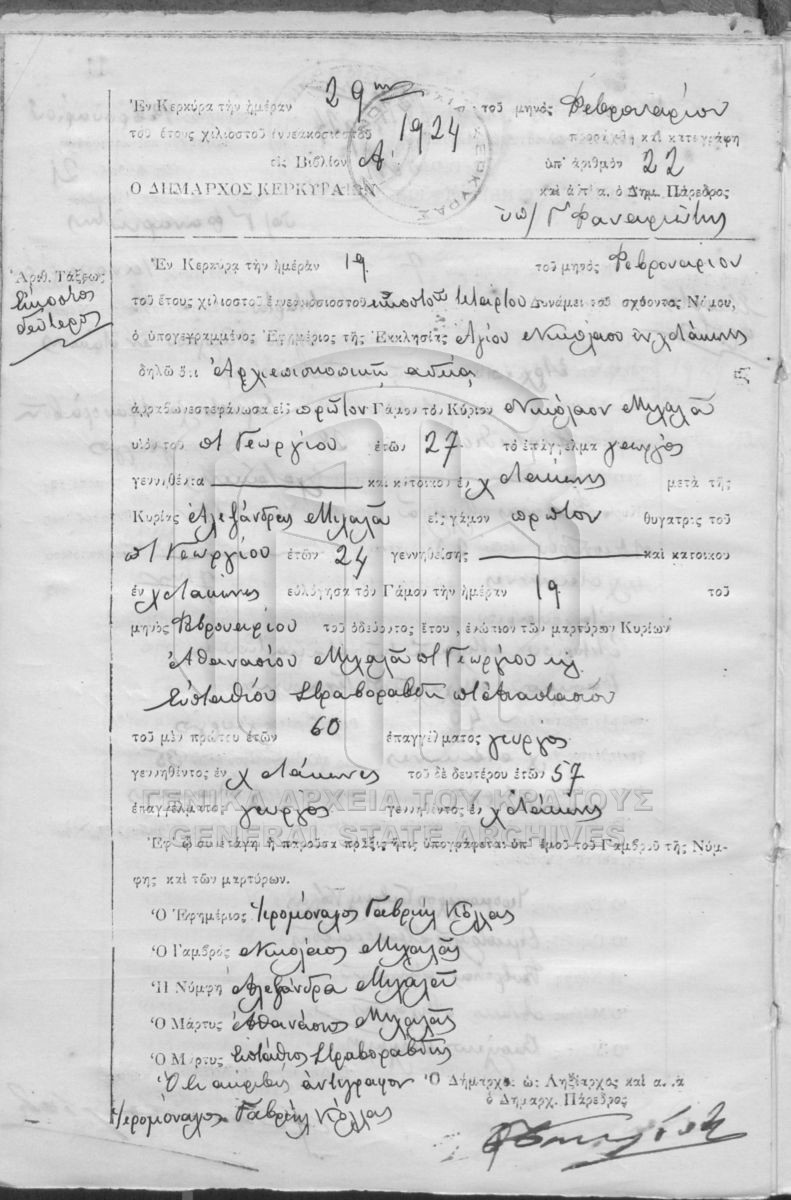 Ἐν Κερκύρᾳ τὴν ἡμέραν 29ην τοῦ μηνὸς Φεβρουαρίου
τοῦ ἔτους χιλιοστοῦ ἐννεακοσιοστοῦ 1924 κατεγράφη
εἰς Βιβλίον Α' ὑπ' ἀριθμὸν 22
Ὁ ΔΗΜΑΡΧΟΣ ΚΕΡΚΥΡΑΙΩΝ καὶ ἀ. ἀ. ὁ Δημ. Πάρεδρος
ὑπ/ Γ Φαναριώτης
Ἐν Κερκύρᾳ τὴν ἡμέραν 19 τοῦ μηνὸς Φεβρουαρίου
Ἀριθ. Τάξεως
Εἰκοστὸς
δεύτερος
τοῦ ἔτους χιλιοστοῦ ἐννεακοσιοστοῦ εἰκοστοῦ τετάρτου δυνάμει τοῦ Νόμου,
ὁ ὑπογεγραμμένος Ἐφημέριος τῆς Ἐκκλησίας Ἁγίου Νικολάου
δηλῶ ὅτι Ἀρχιεπισκοπικῇ ἀδείᾳ
ἀρραβωνεστεφάνωσα εἰς πρῶτον Γάμον τὸν Κύριον Νικόλαον Μιχαλᾶ
υἱὸν τοῦ πτ Γεωργίου ἐτῶν 27 τὸ ἐπάγγελμα γεωργὸς
γεννηθέντα καὶ κάτοικον ἐν μετὰ τῆς
Κυρίας Ἀλεξάνδρας Μιχαλᾶ εἰς γάμον πρῶτον θυγατρὸς τοῦ
πτ Γεωργίου ἐτῶν 24 γεννηθείσης καὶ κατοίκου
ἐν εὐλόγησα τὸν Γάμον τὴν ἡμέραν 19 τοῦ
μηνὸς Φεβρουαρίου τοῦ ὁδεύοντος ἔτους, ἐνώπιον τῶν μαρτύρων Κυρίων
Ἀθανασίου Μιχαλᾶ πτ Γεωργίου κ/
Εὐσταθίου Στραβοραβδῆ πτ Ἀναστασίου
τοῦ μὲν πρώτου ἐτῶν 60 ἐπαγγέλματος γεωργὸς
γεννηθέντος ἐν τοῦ δὲ δευτέρου ἐτῶν 57
ἐπαγγέλματος γεωργὸς γεννηθέντος ἐν
ΓΕΝΙΚΑ ΑΡΧΕΙΑ ΤΟΥ ΚΡΑΤΟΥΣ
GENERAL STATE ARCHIVES
Ἐφ' ᾧ συνετάγη ἡ παροῦσα πρᾶξις ἥτις ὑπογράφεται ὑπ' ἐμοῦ τοῦ Γαμβροῦ τῆς Νύμ-
φης καὶ τῶν μαρτύρων.
Ὁ Ἐφημέριος Ἱερομόναχος Γαβριὴλ Κόλλας
Ὁ Γαμβρὸς Νικόλαος Μιχαλᾶς
Ἡ Νύμφη Ἀλεξάνδρα Μιχαλᾶ
Ὁ Μάρτυς Ἀθανάσιος Μιχαλᾶς
Ὁ Μάρτυς Εὐστάθιος Στραβοραβδῆς
Ὅτι ἀκριβὲς ἀντίγραφον Ὁ Δήμαρχος ὡς Ληξίαρχος καὶ ἀ. ἀ
ὁ Δημαρχ. Πάρεδρος
Ἱερομόναχος Γαβριὴλ Κόλλας